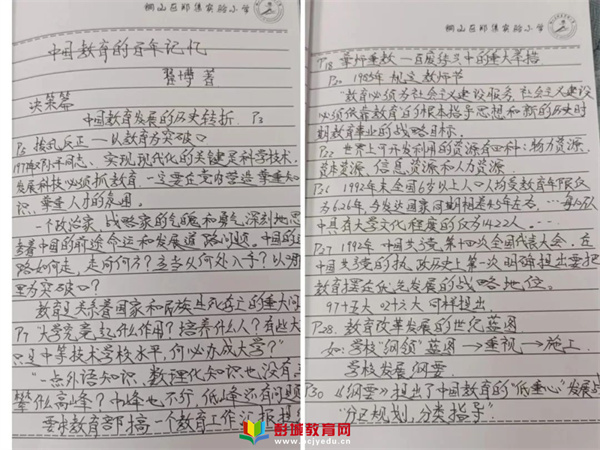 铜山区邱集实验小学
中国教育的百年记忆
翟博 著
决策篇
中国教育发展的历史转折 P3
P5 拨乱反正——以教育为突破口
同志、实现现代化的关键是科学技术,
发展科技必须抓教育 一定要在党内营造尊重知
识、尊重人才的氛围
一个政治家、战略家的气魄和勇气深刻地思
考着中国的前途命运和发展道路问题。中国的道
路如何走,走向何方?应当从何处入手?以哪
里为突破口?
教育是关系着国家和民族生死存亡的重大问
P7 "大学究竟起什么作用?培养什么人?有些大
只是中等技术学校水平,何必办成大学?"
"一点外语知识、数理化知识也没有,
攀什么高峰?中峰也不行,低峰还有问题
要求教育部搞一个教育工作汇报提纲
铜山区邱集实验小学
P18 尊师重教 一百废待兴中的重大举措
P20 1985年 规定教师节
"教育必须为社会主义建设服务,社会主义建设
必须依靠教育"的根本指导思想和新的历史时
期教育事业的战略目标.
P22 世界上可开发利用的资源有四种:物力资源、
资本资源、信息资源和人力资源.
P26 1992年末全国6岁以上人口人均受教育年限仅
为6.26年,与发达国家同期相差4.5年左右, ……每人口
中具有大学文化程度的仅为1422人. ……
P27 1992年 中国共产党第十四次全国代表大会,在
中国共产党的执政历史上第一次明确提出要把
教育摆在优先发展的战略地位。
97十五大 02十六大 同样提出
P28. 教育改革发展的世纪蓝图
如:学校"纲领"蓝图→重视→施工
学校发展纲要
P30 《纲要》提出了中国教育的"低重心"发展战
"分区规划,分类指导"
彭城教育网
www.pcjyedu.cn